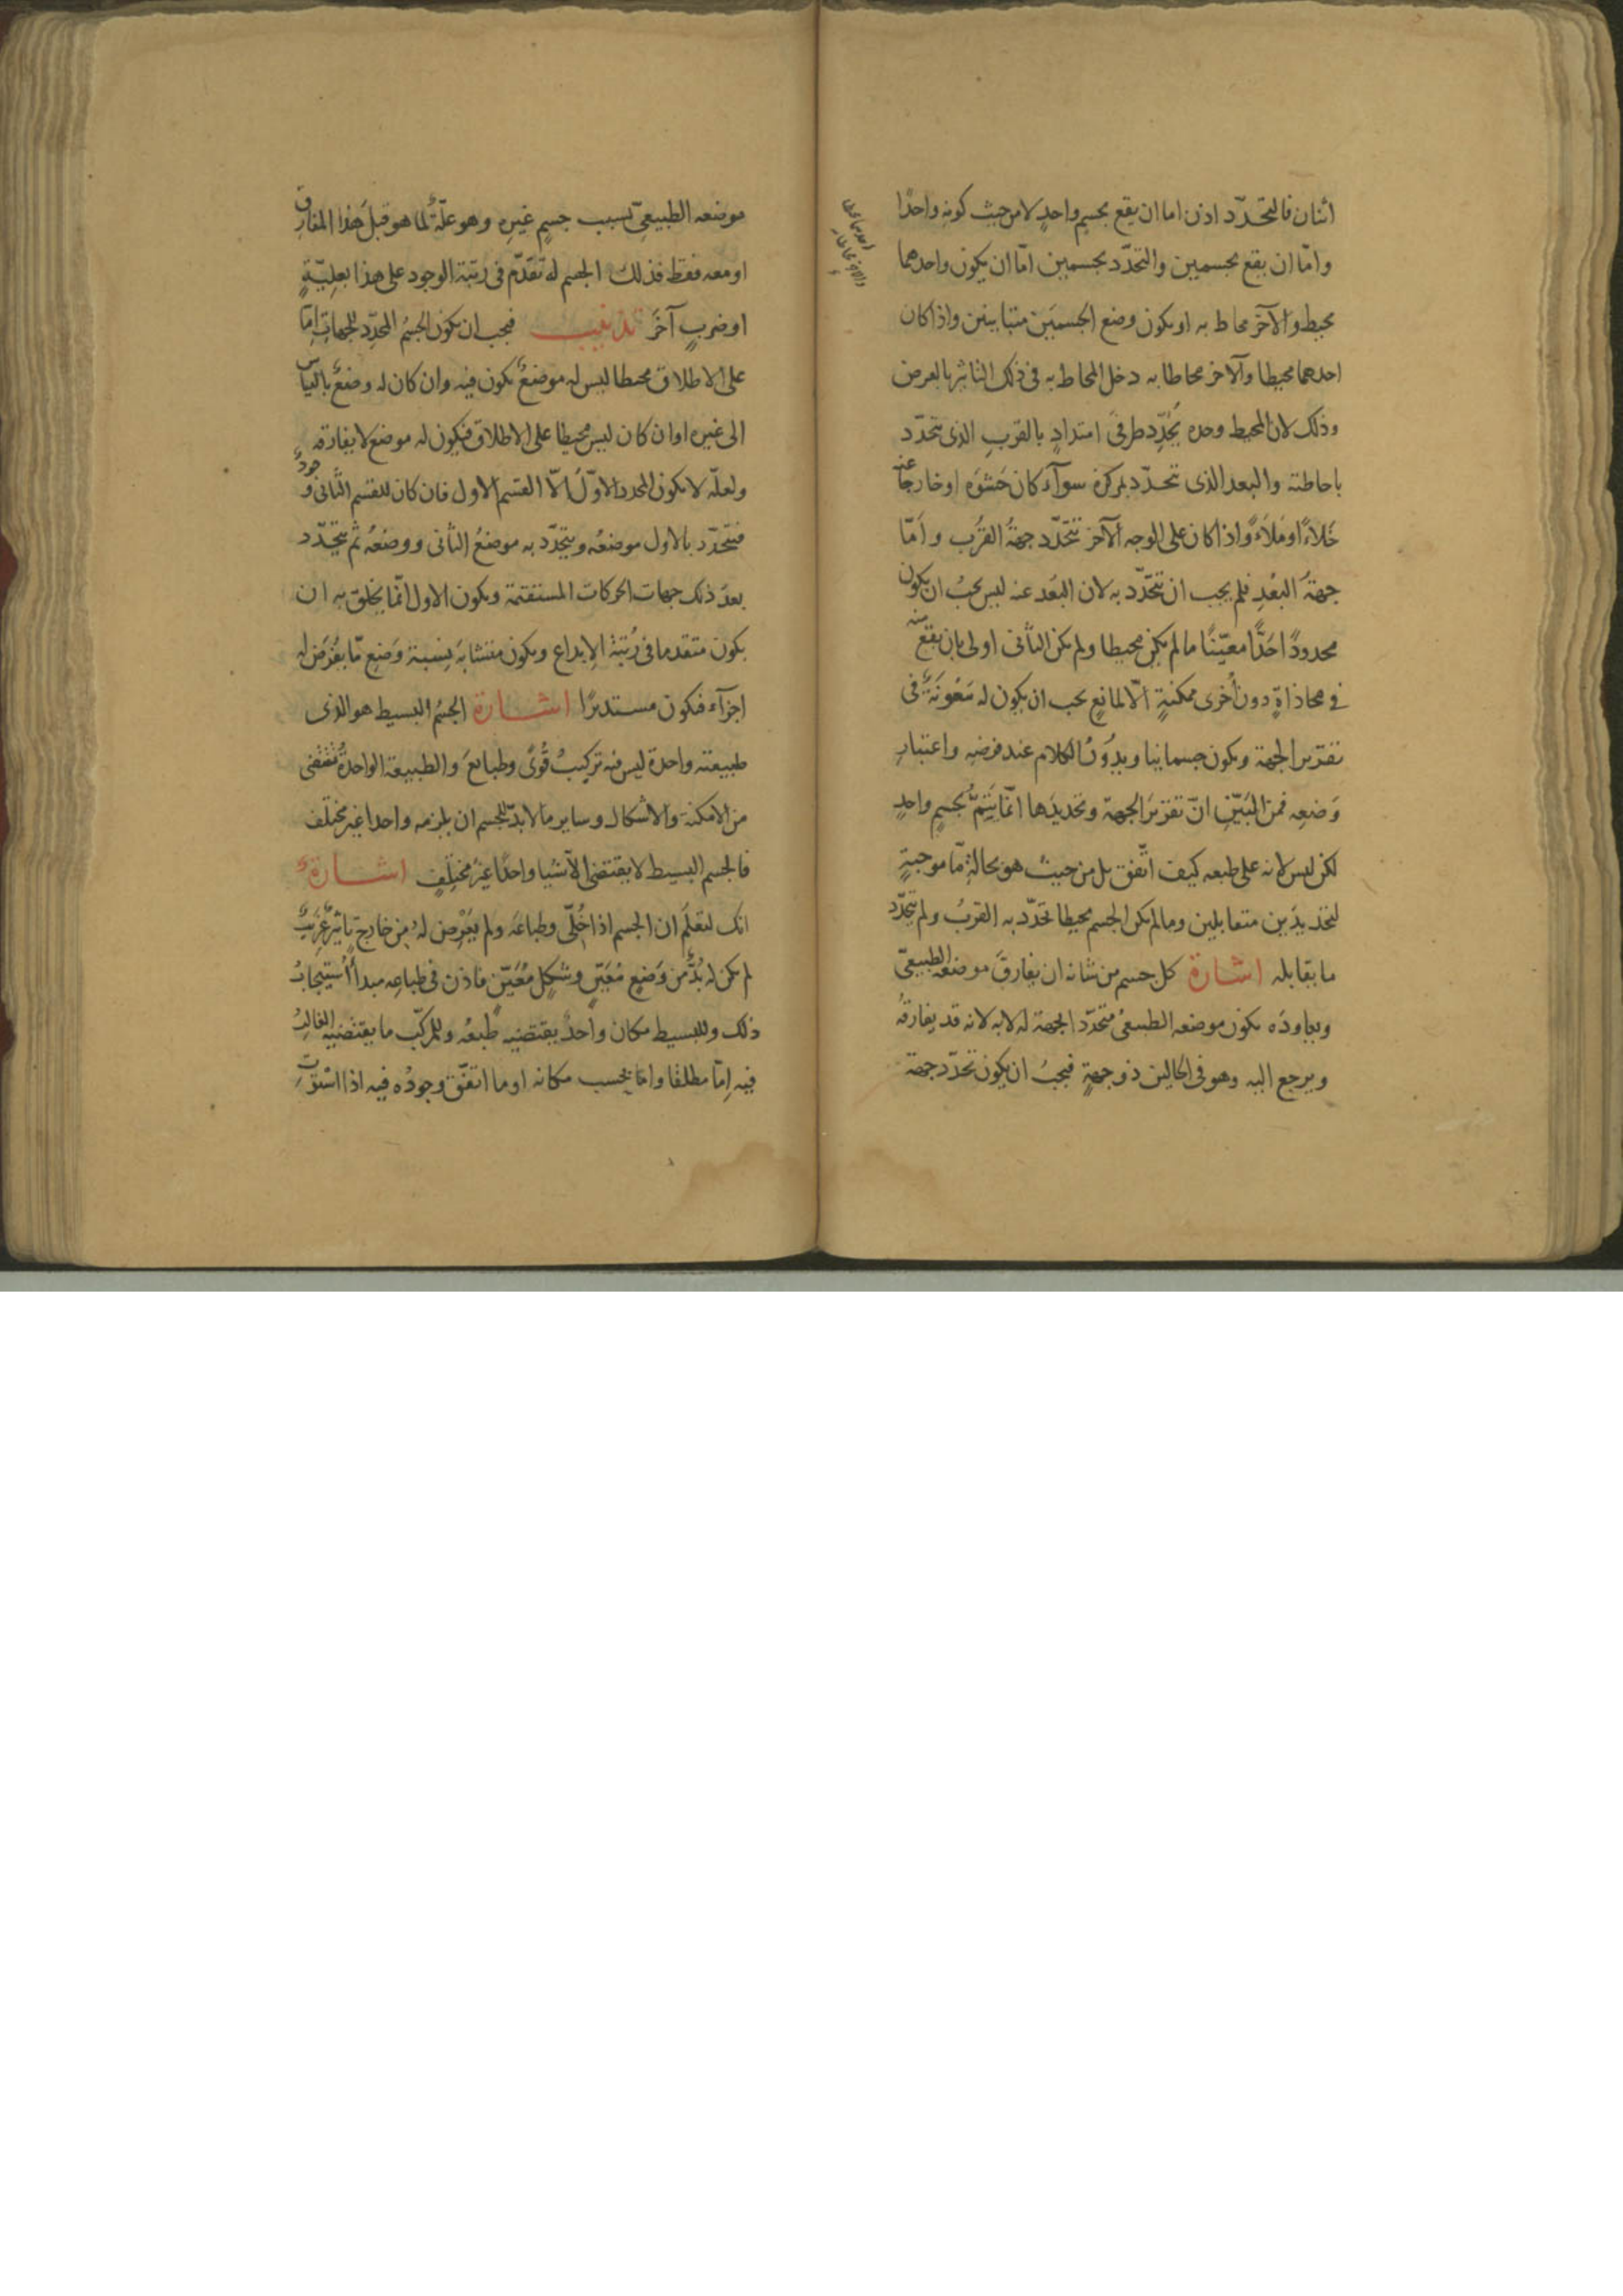 اثنان فالتحدّد اذن اما ان يقع بجسم واحدٍ لا من حيث كونه واحدًا
وامّا ان يقع بجسمين والتحدّد بجسمين امّا ان يكون واحدهما
محيط والآخر محاط به او يكون وضع الجسمَين متباينين واذا كان
احدهما محيطا والآخر محاطا به دخل المحاط به فى ذلك التاثير بالعرض
وذلك لان المحيط وحده يُحدِّد طرفَى امتدادٍ بالقربِ الذى يتحدّد
باحاطته والبعد الذى تحدّد بمركزه سوآء كان حَشوَه او خارجًا عنه
خَلاءً او مَلاءً واذا كان على الوجه الآخر تتحدّد جهةُ القُرب وامّا
جهةُ البُعْدِ فلم يجب ان تتحدّد به لان البُعد عنه ليس يجبُ ان يكون
محدودًا حَدًّا معيّنًا ما لم يكن محيطا ولم يكن الثانى اولى بان يقع منه
فى محاذاةٍ دون أخرى ممكنةٍ الّا لمانعٍ يجب ان يكون له مَعُونَةٌ فى
تقدير الجهة ويكون جسمانيا ويدُورُ الكلام عند فرضه واعتبارِ
وَضعِه فمن البَيّن انّ تقرير الجهة وتحديدَها انّما يَتِمُّ بجسمٍ واحدٍ
لكن ليس لانه على طبعه كيف اتّفق بل من حيث هو بحالةٍ مّا موجبةٍ
لتحديدَين متقابلين وما لم يكن الجسم محيطا تحدّد به القربُ ولم يتحدّد
ما يقابله اشارة كل جسم من شانه ان يفارقَ موضعه الطبيعىّ
ويعاودَه يكون موضعه الطبيعىُ متحدّد الجهة له لا به لانه قد يفارقُه
ويرجع اليه وهو فى الحالين ذو جهةٍ فيجبُ ان يكون تحدّد جهة
موضعه الطبيعىّ بسبب جسمٍ غيرِه وهو علّةٌ لما هو قبلَ هذا المفارق
او معه فقط فذلك الجسم له تقدّم فى رتبة الوجود على هذا بعلِيّةٍ
او ضربٍ آخَرَ تذنيب فيجب ان يكون الجسمُ المحدِّد للجهاتِ اِمّا
على الاطلاق محيطا ليس له موضعٌ يكون فيه وان كان له وضعٌ بالقياس
الى غيره او ان كان ليس محيطا على الاطلاق فيكون له موضع لا يفارقه
ولعلّه لا يكون المحدد الاوّل الّا القسم الاول فان كان للقسم الثانى وجودٌ
فيتحدّد بالاول موضعُه ويتحدّد به موضعُ الثانى ووضعُه ثم يتحدّد
بعدَ ذلك جهات الحركات المستقيمة ويكون الاول انّما يخلق به ان
يكون متقدما فى رُتبةِ الاِبداع ويكون متشابهَ نِسبةِ وَضعِ مّا يُفرَض له
اجزآء فيكون مستديرًا اشارة الجسمُ البسيط هو الذى
طبيعته واحدة ليس فيه تركيبُ قُوًى وطبايعَ والطبيعة الواحدةُ تقتضى
من الامكنة والاشكال وساير ما لا بدّ للجسم ان يلزمه واحدا غير مختلف
فالجسم البسيط لا يقتضى الّا شيا واحدًا غيرَ مختلفٍ اشارةٌ
انك لتعلَم ان الجسم اذا خُلّى وطباعَه ولم يَعْرِض له من خارجٍ تاثيرٌ غريبٌ
لم يكن له بُدٌّ من وَضعٍ مُعَيّنٍ وشكلٍ مُعَيّنٍ فاذن فى طباعِه مبدأُ استيجابِ
ذلك وللبسيط مكان واحدٌ يقتضيه طبعُه وللمركّب ما يقتضيه الغالبُ
فيه اِمّا مطلقا وامّا بحسب مكانه او ما اتفّق وجودُه فيه اذا استوَت